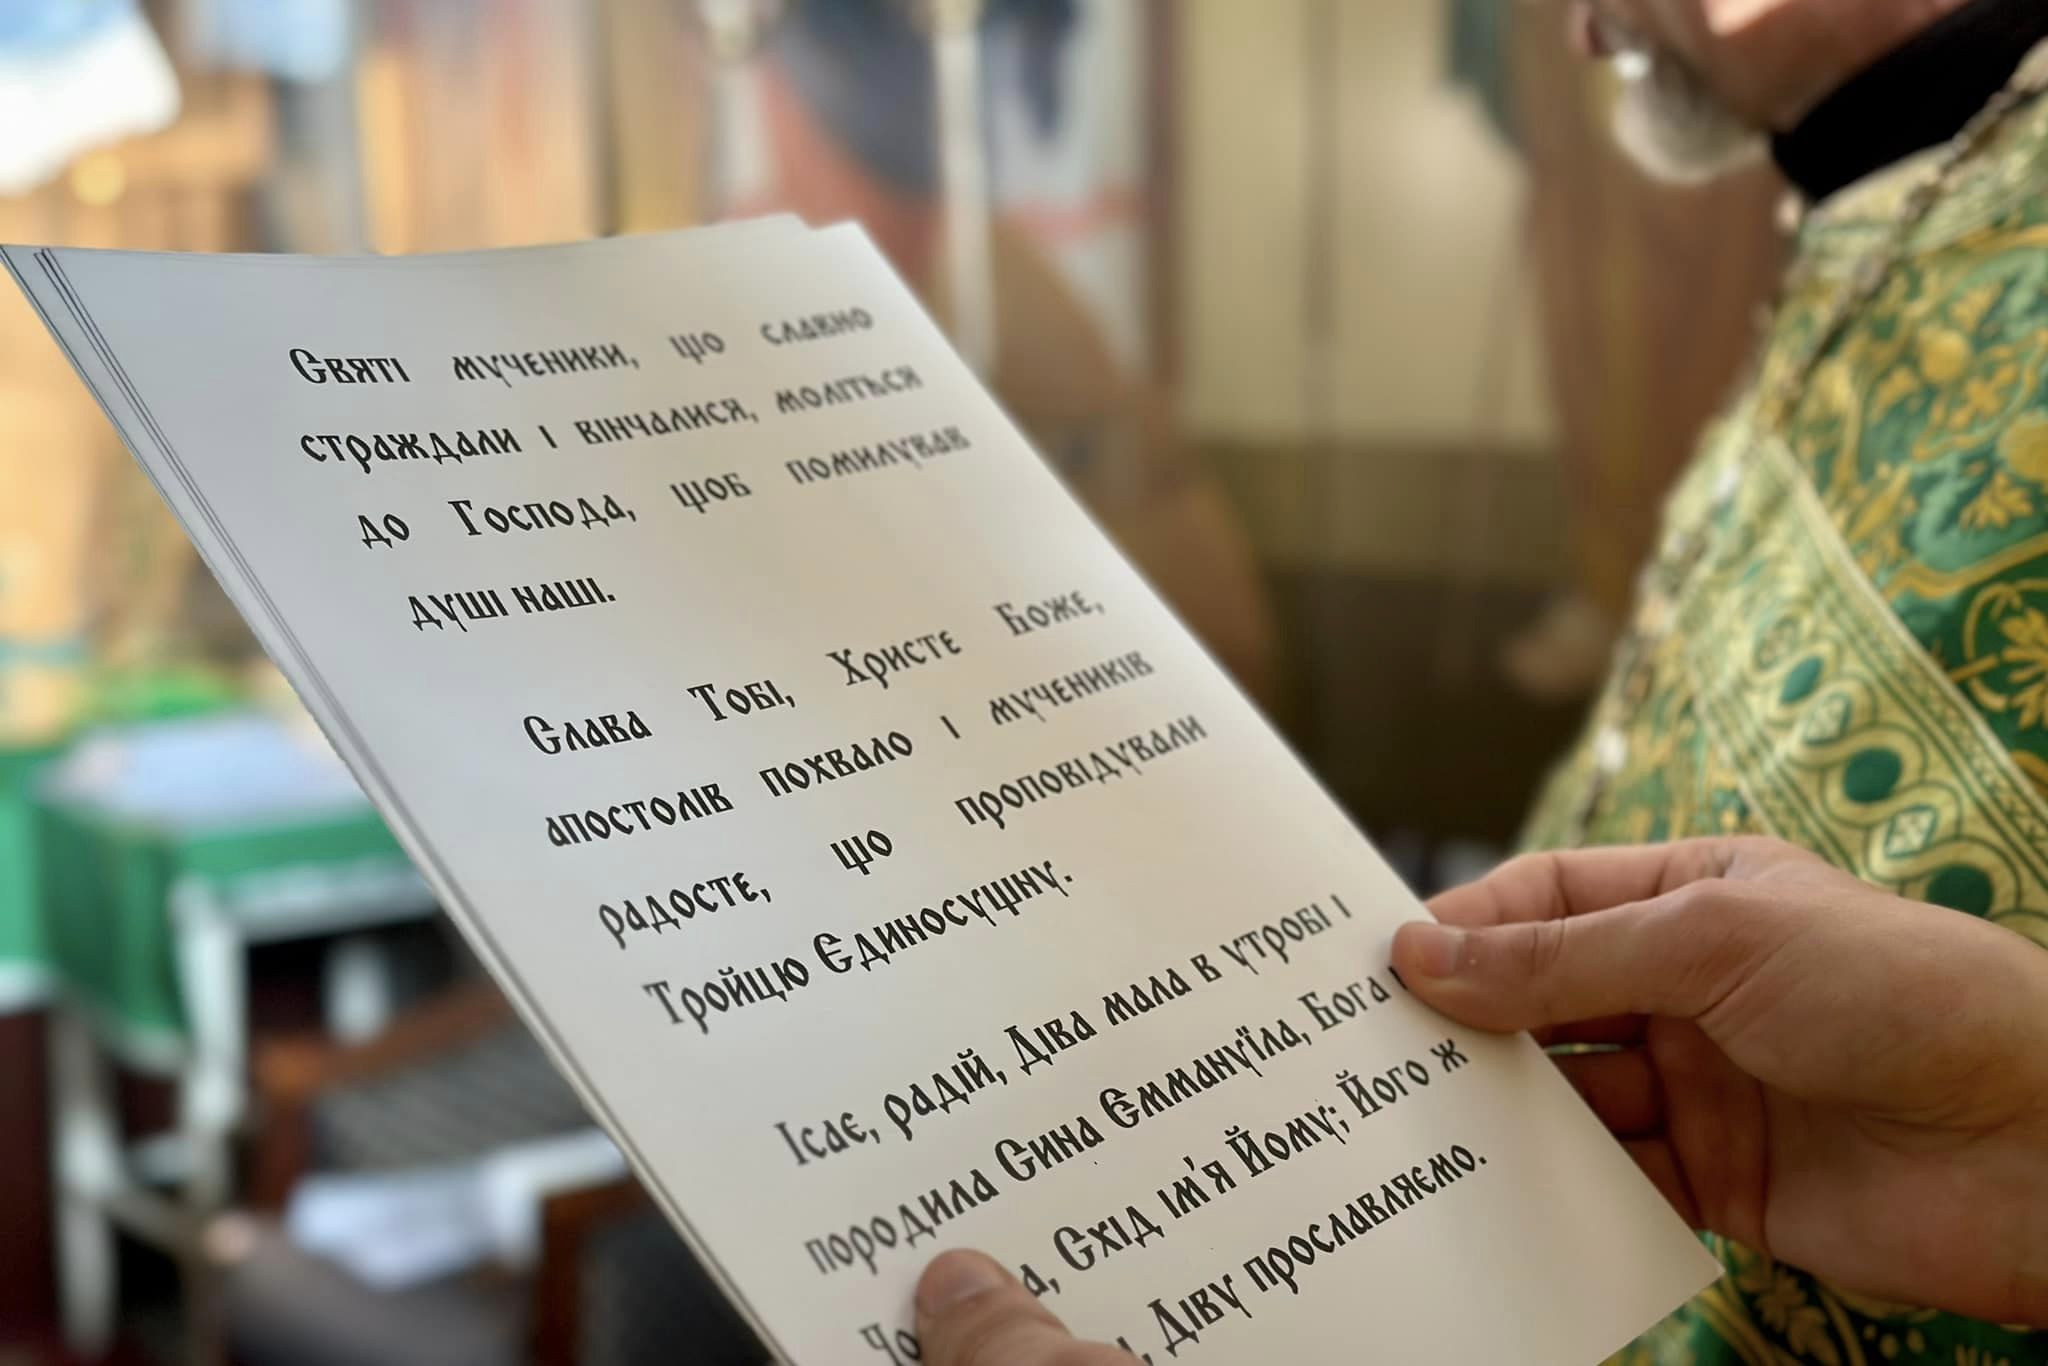 Святі мученики, що славно
страждали і вінчалися, моліться
до Господа, щоб помилував
душі наші.
Слава Тобі, Христе Боже,
апостолів похвало і мучеників
радосте, що проповідували
Тройцю Єдиносущну.
Ісає, радій, Діва мала в утробі і
породила Сина Єммануїла, Бога
Схід ім'я Йому; Його ж
Діву прославляємо.